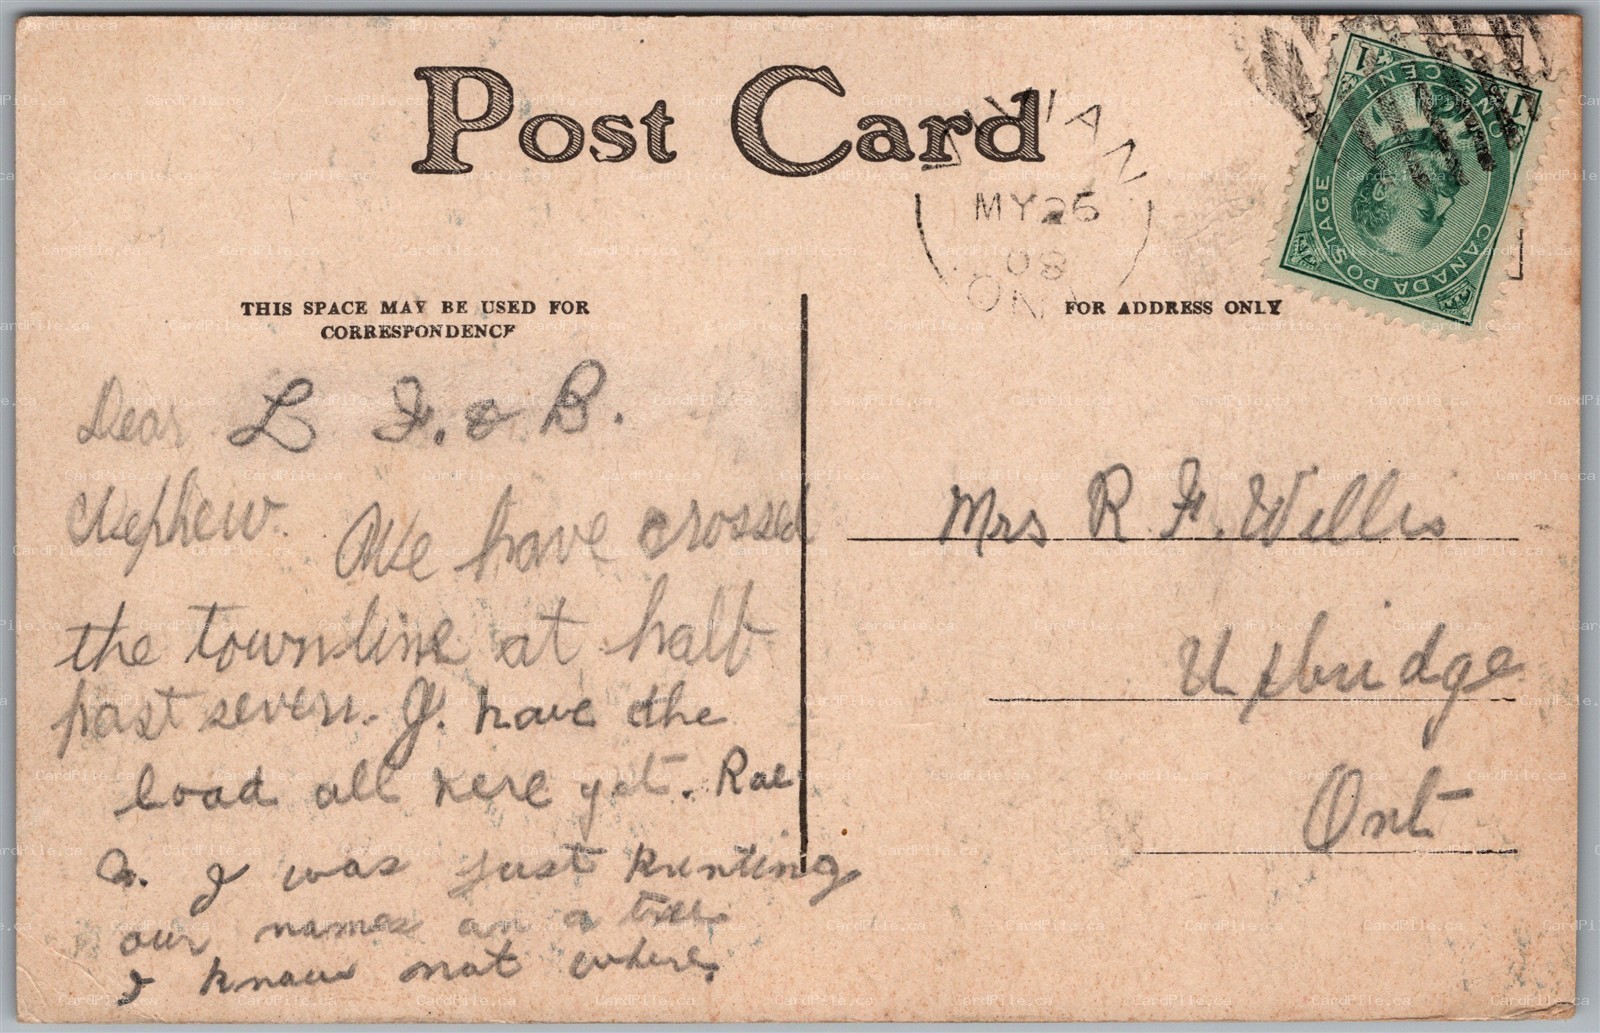 Post Card
VIAN
MY 26
08
ONT
ONE CENT
1 1
CANADA POSTAGE
THIS SPACE MAY BE USED FOR
CORRESPONDENCE
FOR ADDRESS ONLY
Dear L F. & B.
Nephew. We have crossed
the townline at half
past seven. J. have the
load all here yet. Rae
G. I was just hunting
our names on a tree
I know not where.
Mrs R F. Willis
Uxbridge
Ont
CardPile.ca